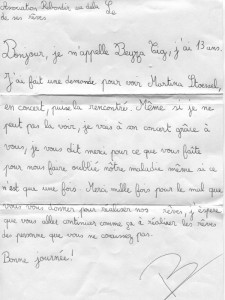 Association Rebondir au delà
de ses rêves
Bonjour, je m'appelle Beyza, j'ai 13 ans.
J'ai fait une demande pour voir Martina Stoessel,
en concert, puis la rencontré. Même si je ne
peut pas la voir, je vais à son concert grâce à
vous, je vous dit merci pour ce que vous faite
pour nous faire oublié nôtre maladie même si ce
n'est que une fois. Merci mille fois pour le mal que
vous vous donner pour réaliser nos rêves, j'éspère
que vous allez continuer comme ça à réaliser les rêves
des personne que vous ne conaissez pas.
Bonne journée!